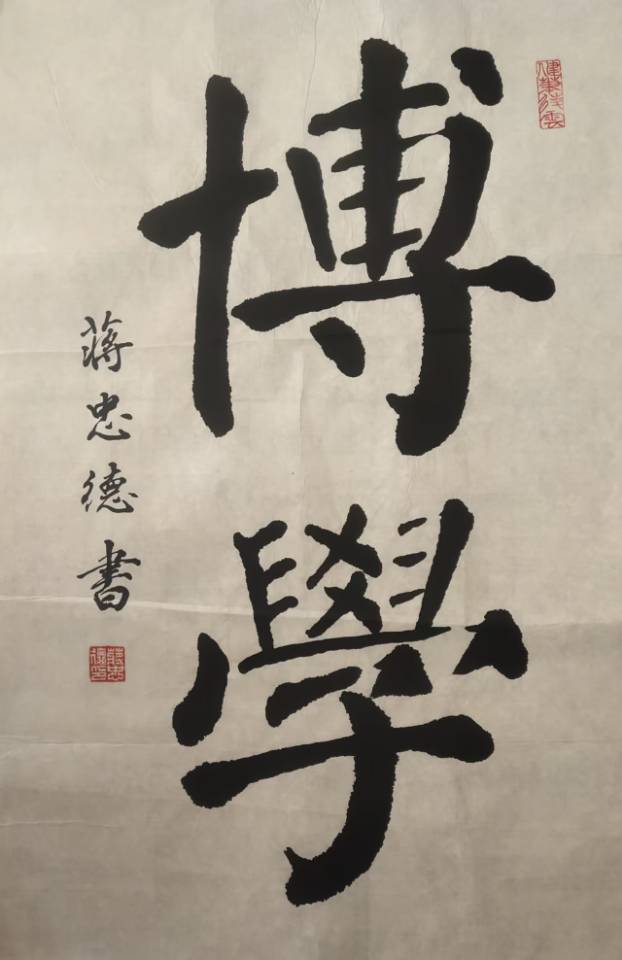 博學
蔣忠德書